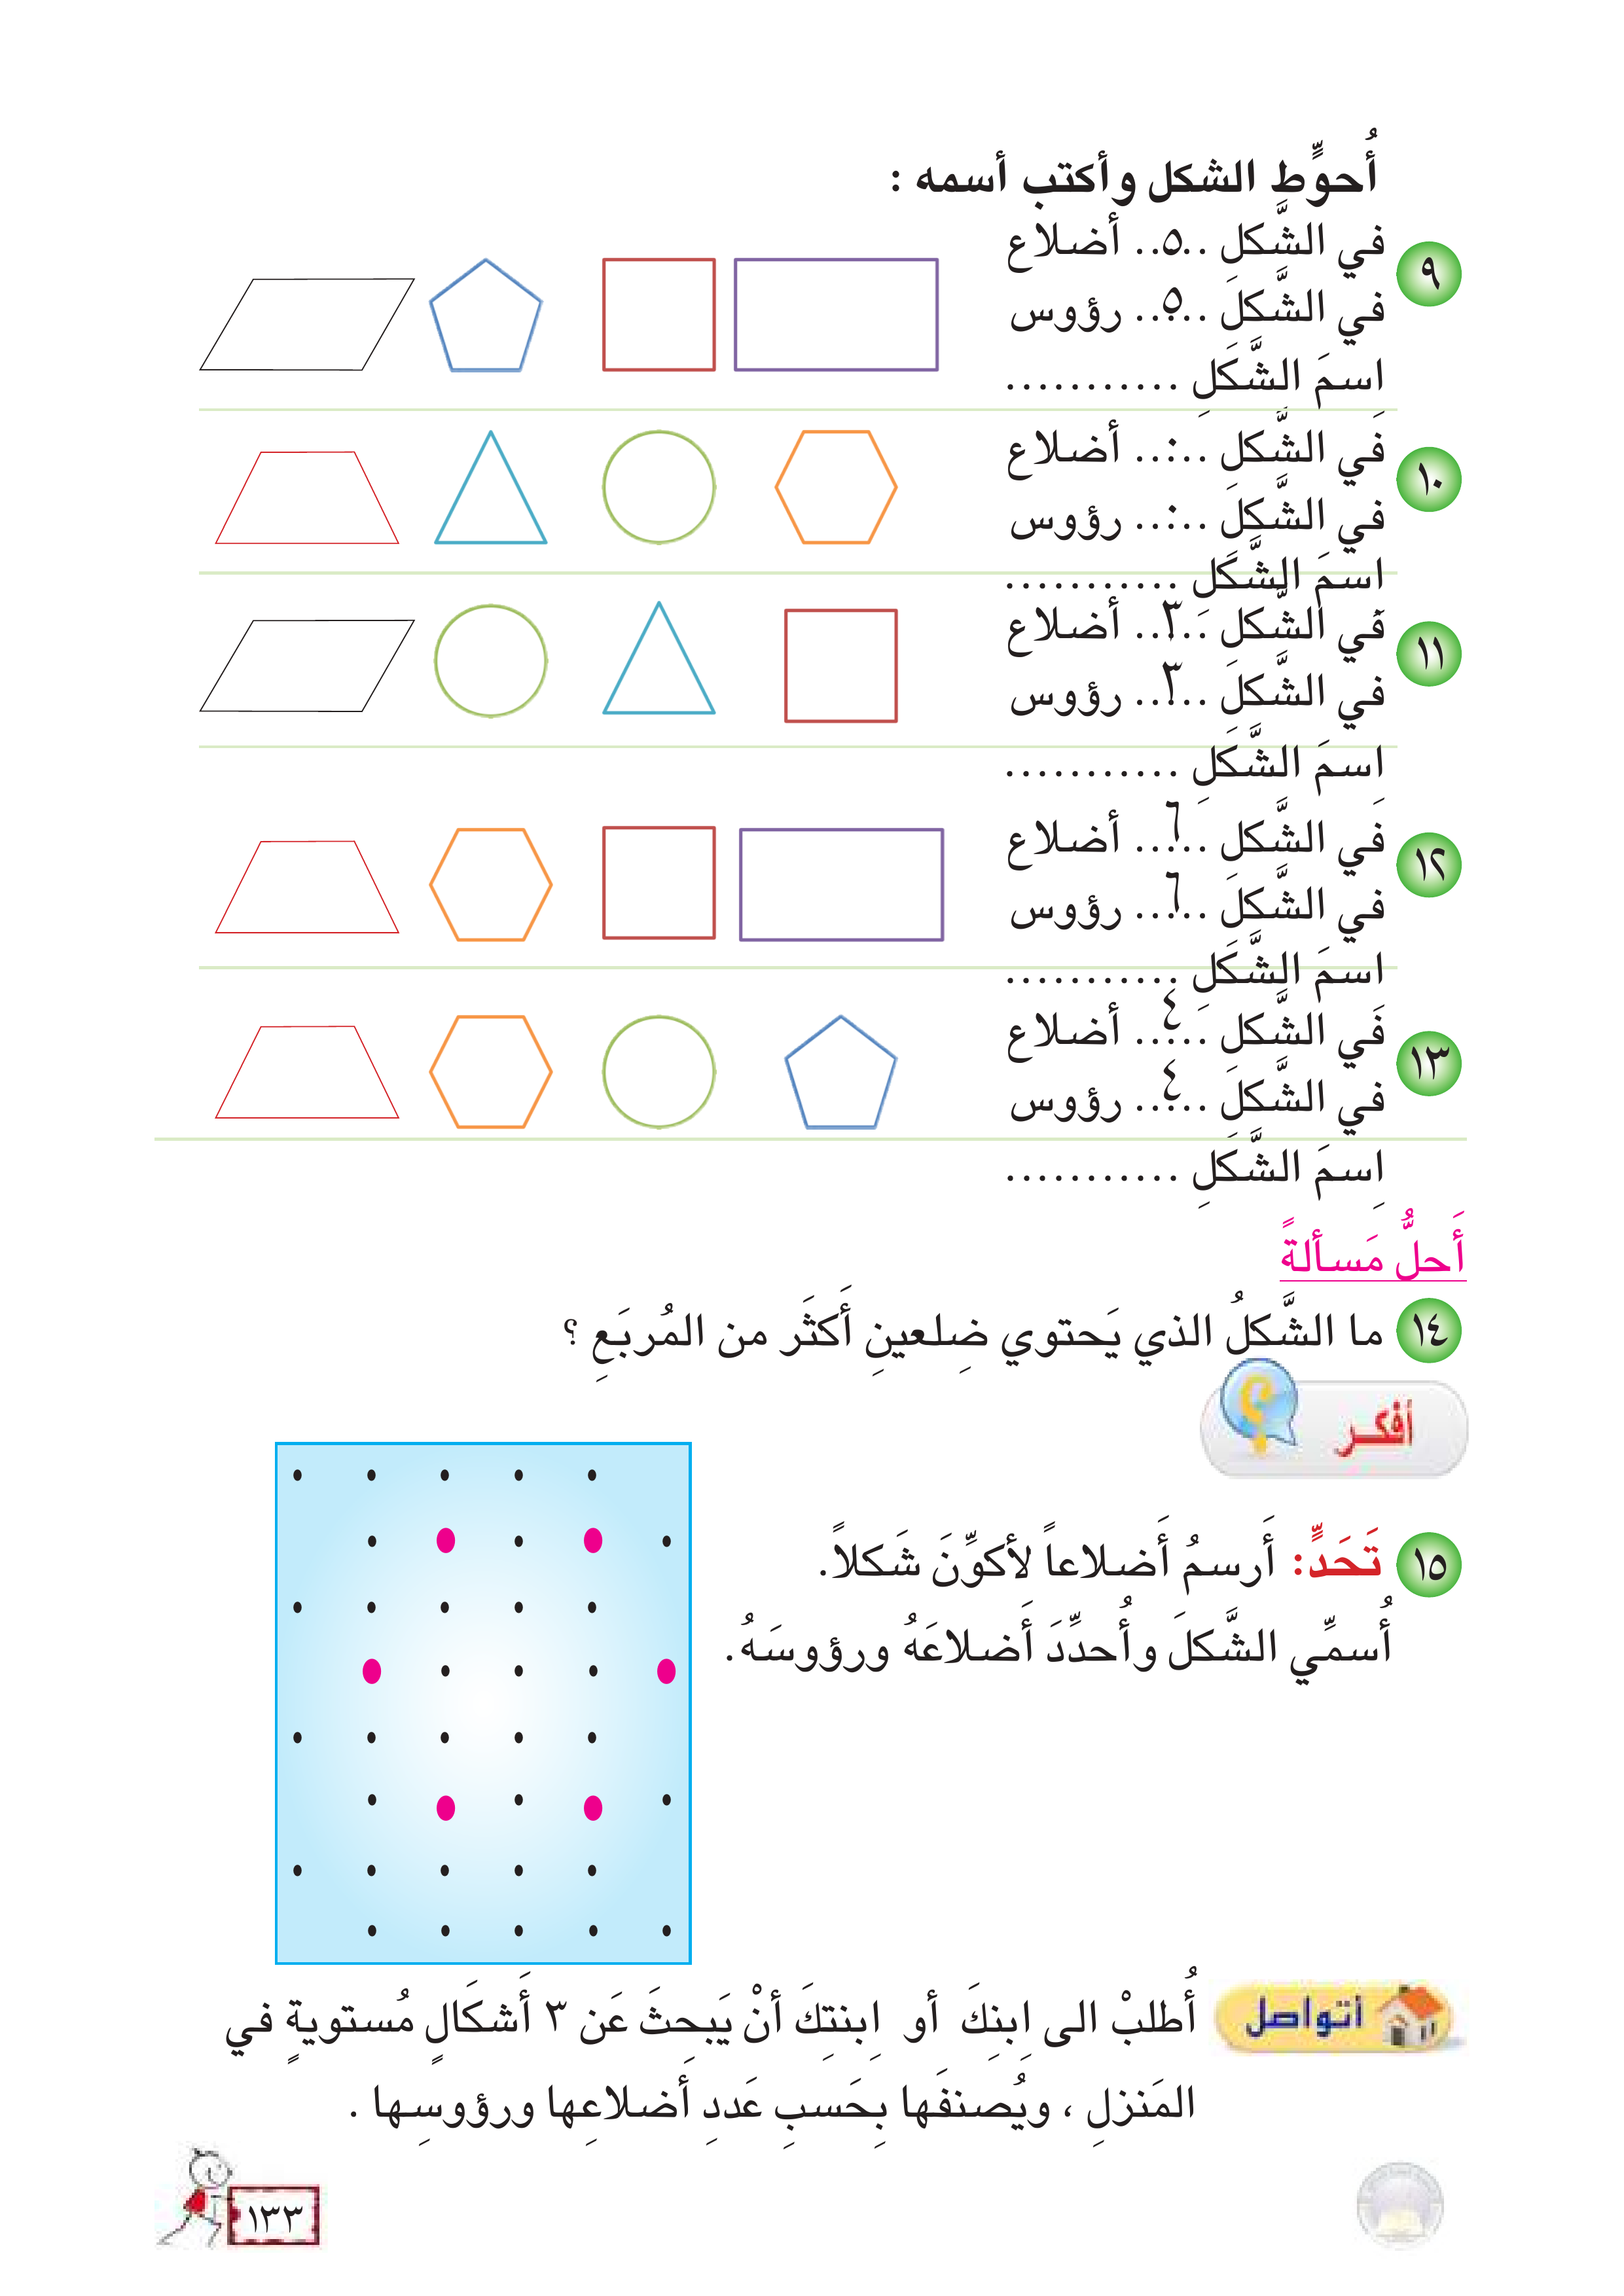 أُحوٍّط الشكل وأكتب أسمه :
٩ في الشَّكلِ ..٥.. أضلاع
في الشَّكلَِ ..٥.. رؤوس
اِسمَ الشَّكَلِ ...........
١٠ في الشَّكلِ ..٠.. أضلاع
في الشَّكلَِ ..٠.. رؤوس
اِسمَ الشَّكَلِ ...........
١١ في الشَّكلَِ ..٣.. أضلاع
في الشَّكلَِ ..٣.. رؤوس
اِسمَ الشَّكَلِ ...........
١٢ في الشَّكلِ ..٦.. أضلاع
في الشَّكلَِ ..٦.. رؤوس
اِسمَ الشَّكَلِ ...........
١٣ في الشَّكلَِ ..٤.. أضلاع
في الشَّكلَِ ..٤.. رؤوس
اِسمَ الشَّكَلِ ...........
أَحلُّ مَسألةً
١٤ ما الشَّكلُ الذي يَحتوي ضِلعينِ أَكثَر من المُربَعِ ؟
أفكر
١٥ تَحَدٍّ: أَرسمُ أَضلاعاً لأكوِّنَ شَكلاً.
أُسمِّي الشَّكلَ وأُحدِّدَ أَضلاعَهُ ورؤوسَهُ.
أتواصل أُطلبْ الى اِبنِكَ أو اِبنتِكَ أنْ يَبحِثَ عَن ٣ أَشكَالٍ مُستويةٍ في
المَنزلِ ، ويُصنفَها بِحَسبِ عَددِ أَضلاعِها ورؤوسِها .
١٣٣